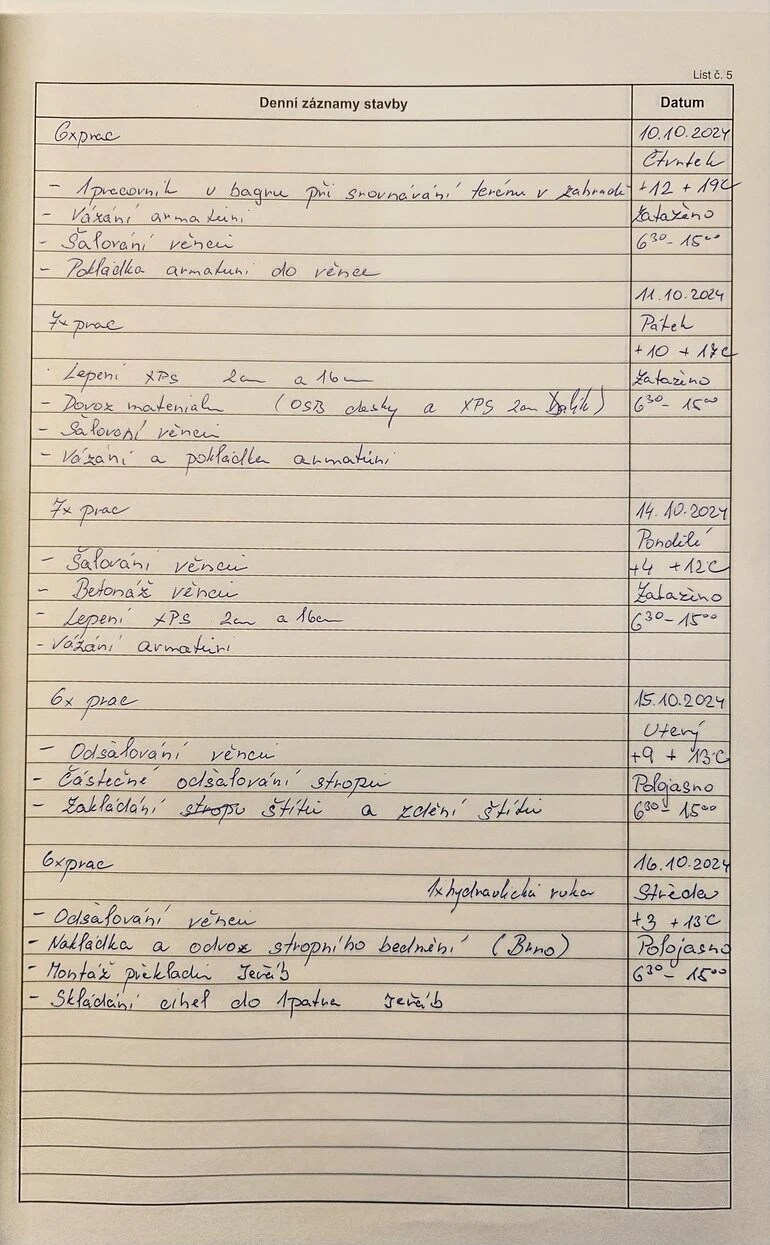 List č. 5
Denní záznamy stavby Datum
6xprac 10.10.2024
Čtvrtek
- 1pracovník u bagru při srovnávání terénu v zahradě +12 +19C
- Vázání armatuni Zataženo
- Šalování věnců 6³⁰- 15⁰⁰
- Pokládka armatuni do věnce
11.10.2024
7x prac Pátek
+10 +17C
- Lepení XPS 2cm a 16cm Zataženo
- Dovoz materialu (OSB desky a XPS 2cm) 6³⁰- 15⁰⁰
- Šalovaní věnců
- Vázání a pokládka armatúni
7x prac 14.10.2024
Pondělí
- Šalování věnců +4 +12C
- Betonáž věnců Zataženo
- Lepení XPS 2cm a 16cm 6³⁰- 15⁰⁰
- Vázání armatúni
6x prac 15.10.2024
Uterý
- Odšalování věnců +9 + 13°C
- Částečné odšalování stropu Polojasno
- Zakládání stropu štítů a zdění štítů 6³⁰- 15⁰⁰
6xprac 16.10.2024
1xhydraulická ruka Středa
- Odšalování věnců +3 +13C
- Nakládka a odvoz stropního bednění (Brno) Polojasno
- Montáž překladů Jeřáb 6³⁰- 15⁰⁰
- Skládání cihel do 1patra Jeřáb